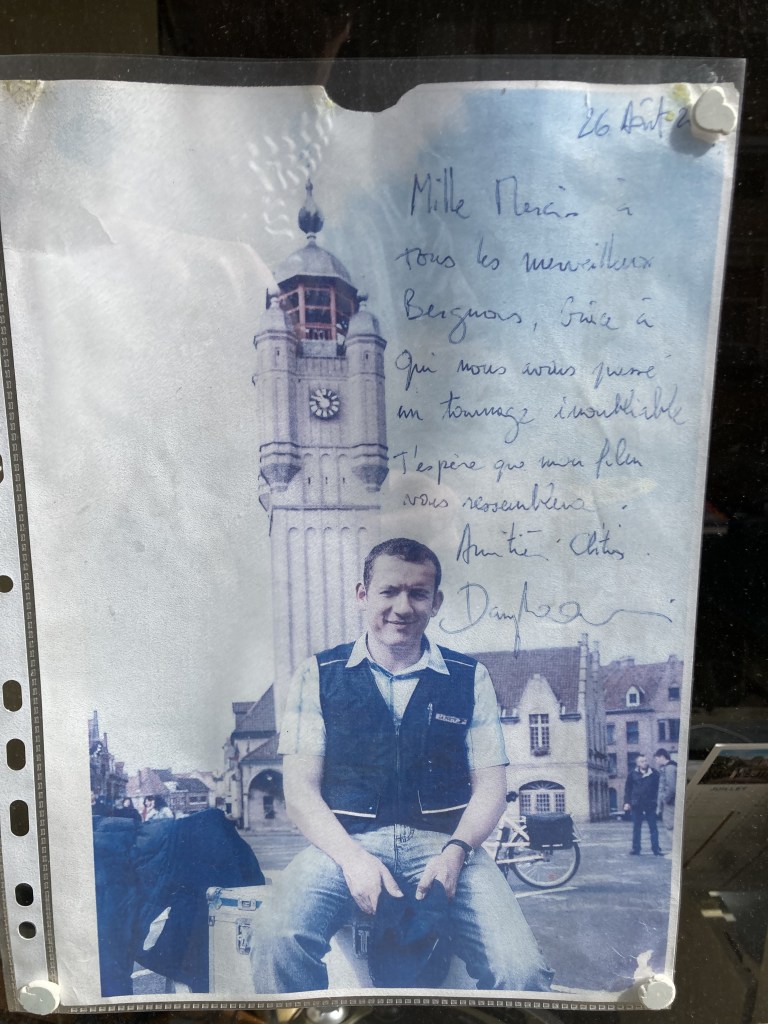 26 Août 2
Mille Mercis à
tous les merveilleux
Berguois, Grâce à
qui nous avons passé
un tournage inoubliable
J'espère que mon film
vous ressemblera.
Amitiés Chtis.
Dany Boon
JUILLET